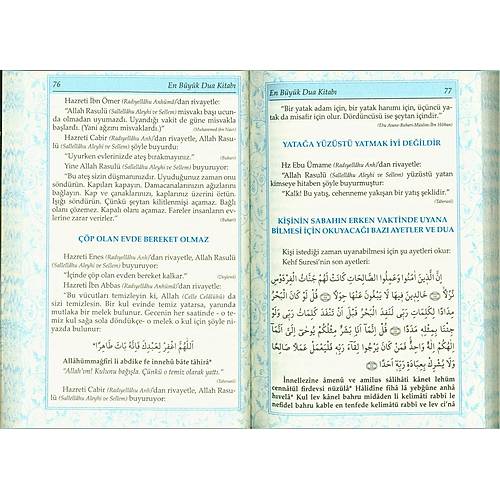 76 En Büyük Dua Kitabı
Hazreti İbn Ömer (Radıyellâhu Anhümâ)'dan rivayetle:
"Allah Rasulü (Sallellâhu Aleyhi ve Sellem) misvakı başı ucunda olmadan uyumazdı. Uyandığı vakit de güne misvakla
başlardı. (Yani ağzını misvakladı.)" (Muhammed ibn Nasr)
Hazreti Cabir (Radıyellâhu Anh)'dan rivayetle, Allah Rasulü (Sallellâhu Aleyhi ve Sellem) şöyle buyurdu:
"Uyurken evlerinizde ateş bırakmayınız." (Buhari)
Yine Allah Rasulü (Sallellâhu Aleyhi ve Sellem) buyuruyor:
"Bu ateş sizin düşmanınızdır. Uyuduğunuz zaman onu
söndürün. Kapıları kapayın. Damacanalarınızın ağızlarını
bağlayın. Kap ve çanaklarınızı, kaplarınız üzerini örtün.
Işığı söndürün. Çünkü şeytan kilitlenmişi açamaz. Bağlı
olanı çözemez. Kapalı olanı açamaz. Fareler insanların evlerine zarar verirler." (Buhari)
ÇÖP OLAN EVDE BEREKET OLMAZ
Hazreti Enes (Radıyellâhu Anh)'dan rivayetle, Allah Rasulü
(Sallellâhu Aleyhi ve Sellem) buyuruyor:
"İçinde çöp olan evden bereket kalkar."
Hazreti İbn Abbas (Radıyellâhu Anhümâ)'dan rivayetle:
"Bu vücutları temizleyin ki, Allah (Celle Celâlühü) da
sizi temizlesin. Bir kul abdestli yatarsa, kendi yanında
mutlaka bir melek bulunur. Gecenin her saatinde - o temiz kul sağa sola döndükçe- o melek o kul için şöyle niyazda bulunur:
اَللّٰهُمَّ اغْفِرْ لِعَبْدِكَ فَاِنَّهُ بَاتَ طَاهِرًا
Allâhümmağfirli li abdike fe innehû bâte tâhirâ"
"Allah'ım! Kulunu bağışla. Çünkü o temiz olarak yattı."
(Taberani)
Hazreti Cabir (Radıyellâhu Anh)'dan rivayetle, Allah Rasulü (Sallellâhu Aleyhi ve Sellem) buyuruyor:
En Büyük Dua Kitabı 77
"Bir yatak adam için, bir yatak hanımı için, üçüncü yatak da misafir için olur. Dördüncüsü ise şeytan içindir."
YATAĞA YÜZÜSTÜ YATMAK İYİ DEĞİLDİR
Hz Ebu Ümame (Radıyellâhu Anh)'dan rivayetle:
"Allah Rasulü (Sallellâhu Aleyhi ve Sellem) yüzüstü yatan
kimseye hitaben şöyle buyurmuştur:
"Kalk! Bu yatış, cehenneme yakışan bir yatış şeklidir."
(Taberani)
KİŞİNİN SABAHIN ERKEN VAKTİNDE UYANA
BİLMESİ İÇİN OKUYACAĞI BAZI AYETLER VE DUA
Kişi istediği zaman uyanabilmesi için şu ayetleri okur:
Kehf Suresi'nin son ayetleri:
اِنَّ الَّذِينَ اٰمَنُوا وَعَمِلُوا الصَّالِحَاتِ كَانَتْ لَهُمْ جَنَّاتُ الْفِرْدَوْسِ
نُزُلًا خَالِدِينَ فِيهَا لَا يَبْغُونَ عَنْهَا حِوَلًا قُلْ لَوْ كَانَ الْبَحْرُ
مِدَادًا لِكَلِمَاتِ رَبِّي لَنَفِدَ الْبَحْرُ قَبْلَ اَنْ تَنْفَدَ كَلِمَاتُ رَبِّي وَلَوْ
جِئْنَا بِمِثْلِهِ مَدَدًا قُلْ اِنَّمَا اَنَا بَشَرٌ مِثْلُكُمْ يُوحٰى اِلَيَّ اَنَّمَا
اِلٰهُكُمْ اِلٰهٌ وَاحِدٌ فَمَنْ كَانَ يَرْجُوا لِقَاءَ رَبِّهِ فَلْيَعْمَلْ عَمَلًا صَالِحًا
وَلَا يُشْرِكْ بِعِبَادَةِ رَبِّهِ اَحَدًا
İnnellezine âmenû ve amilus sâlihâti kânet lehüm
cennâtül firdevsi nüzülâ* Hâlidine fihâ lâ yebğûne anhâ
hıvelâ* Kul lev kânel bahru midâden li kelimâti rabbî le
nefidel bahru kable en tenfede kelimâtü rabbî ve lev ci'nâ